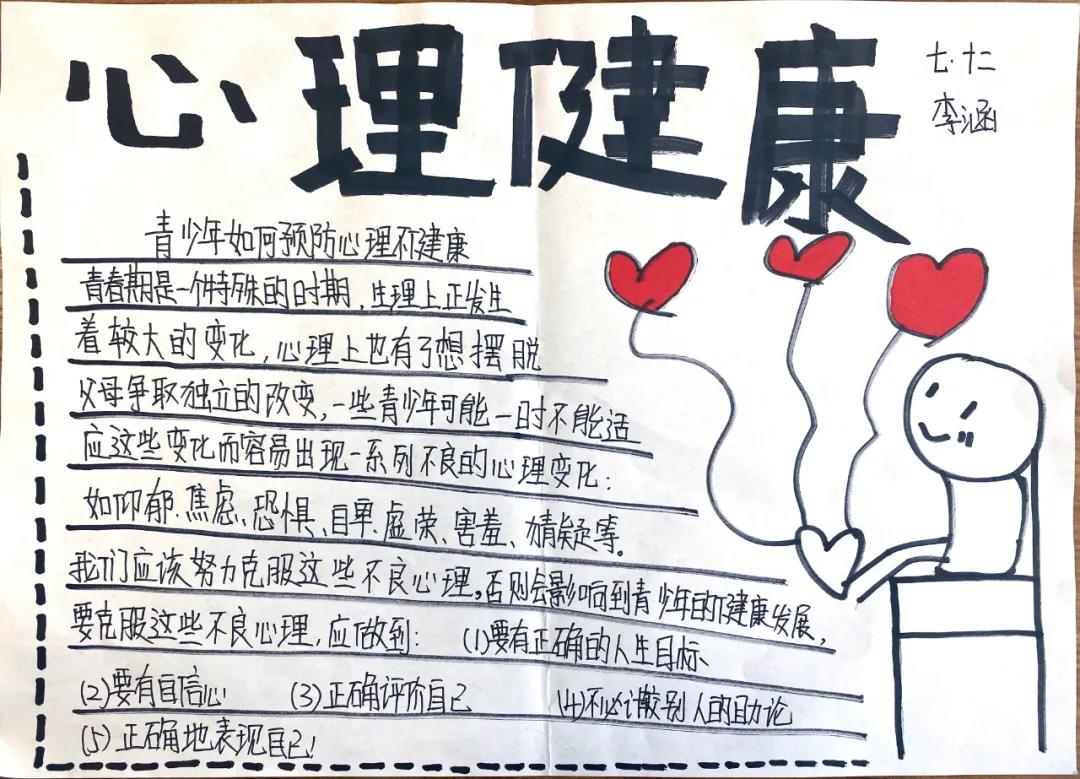 心理健康
七.十二
李涵
青少年如何预防心理不健康
青春期是一个特殊的时期,生理上正发生
着较大的变化,心理上也有了想摆脱
父母争取独立的改变,一些青少年可能一时不能适
应这些变化而容易出现一系列不良的心理变化:
如仰郁、焦虑、恐惧、自卑、虚荣、害羞、猜疑等。
我们应该努力克服这些不良心理,否则会影响到青少年的健康发展,
要克服这些不良心理,应做到: (1)要有正确的人生目标、
(2)要有自信心 (3)正确评价自己 (4)不必计较别人的言论
(5)正确地表现自己!